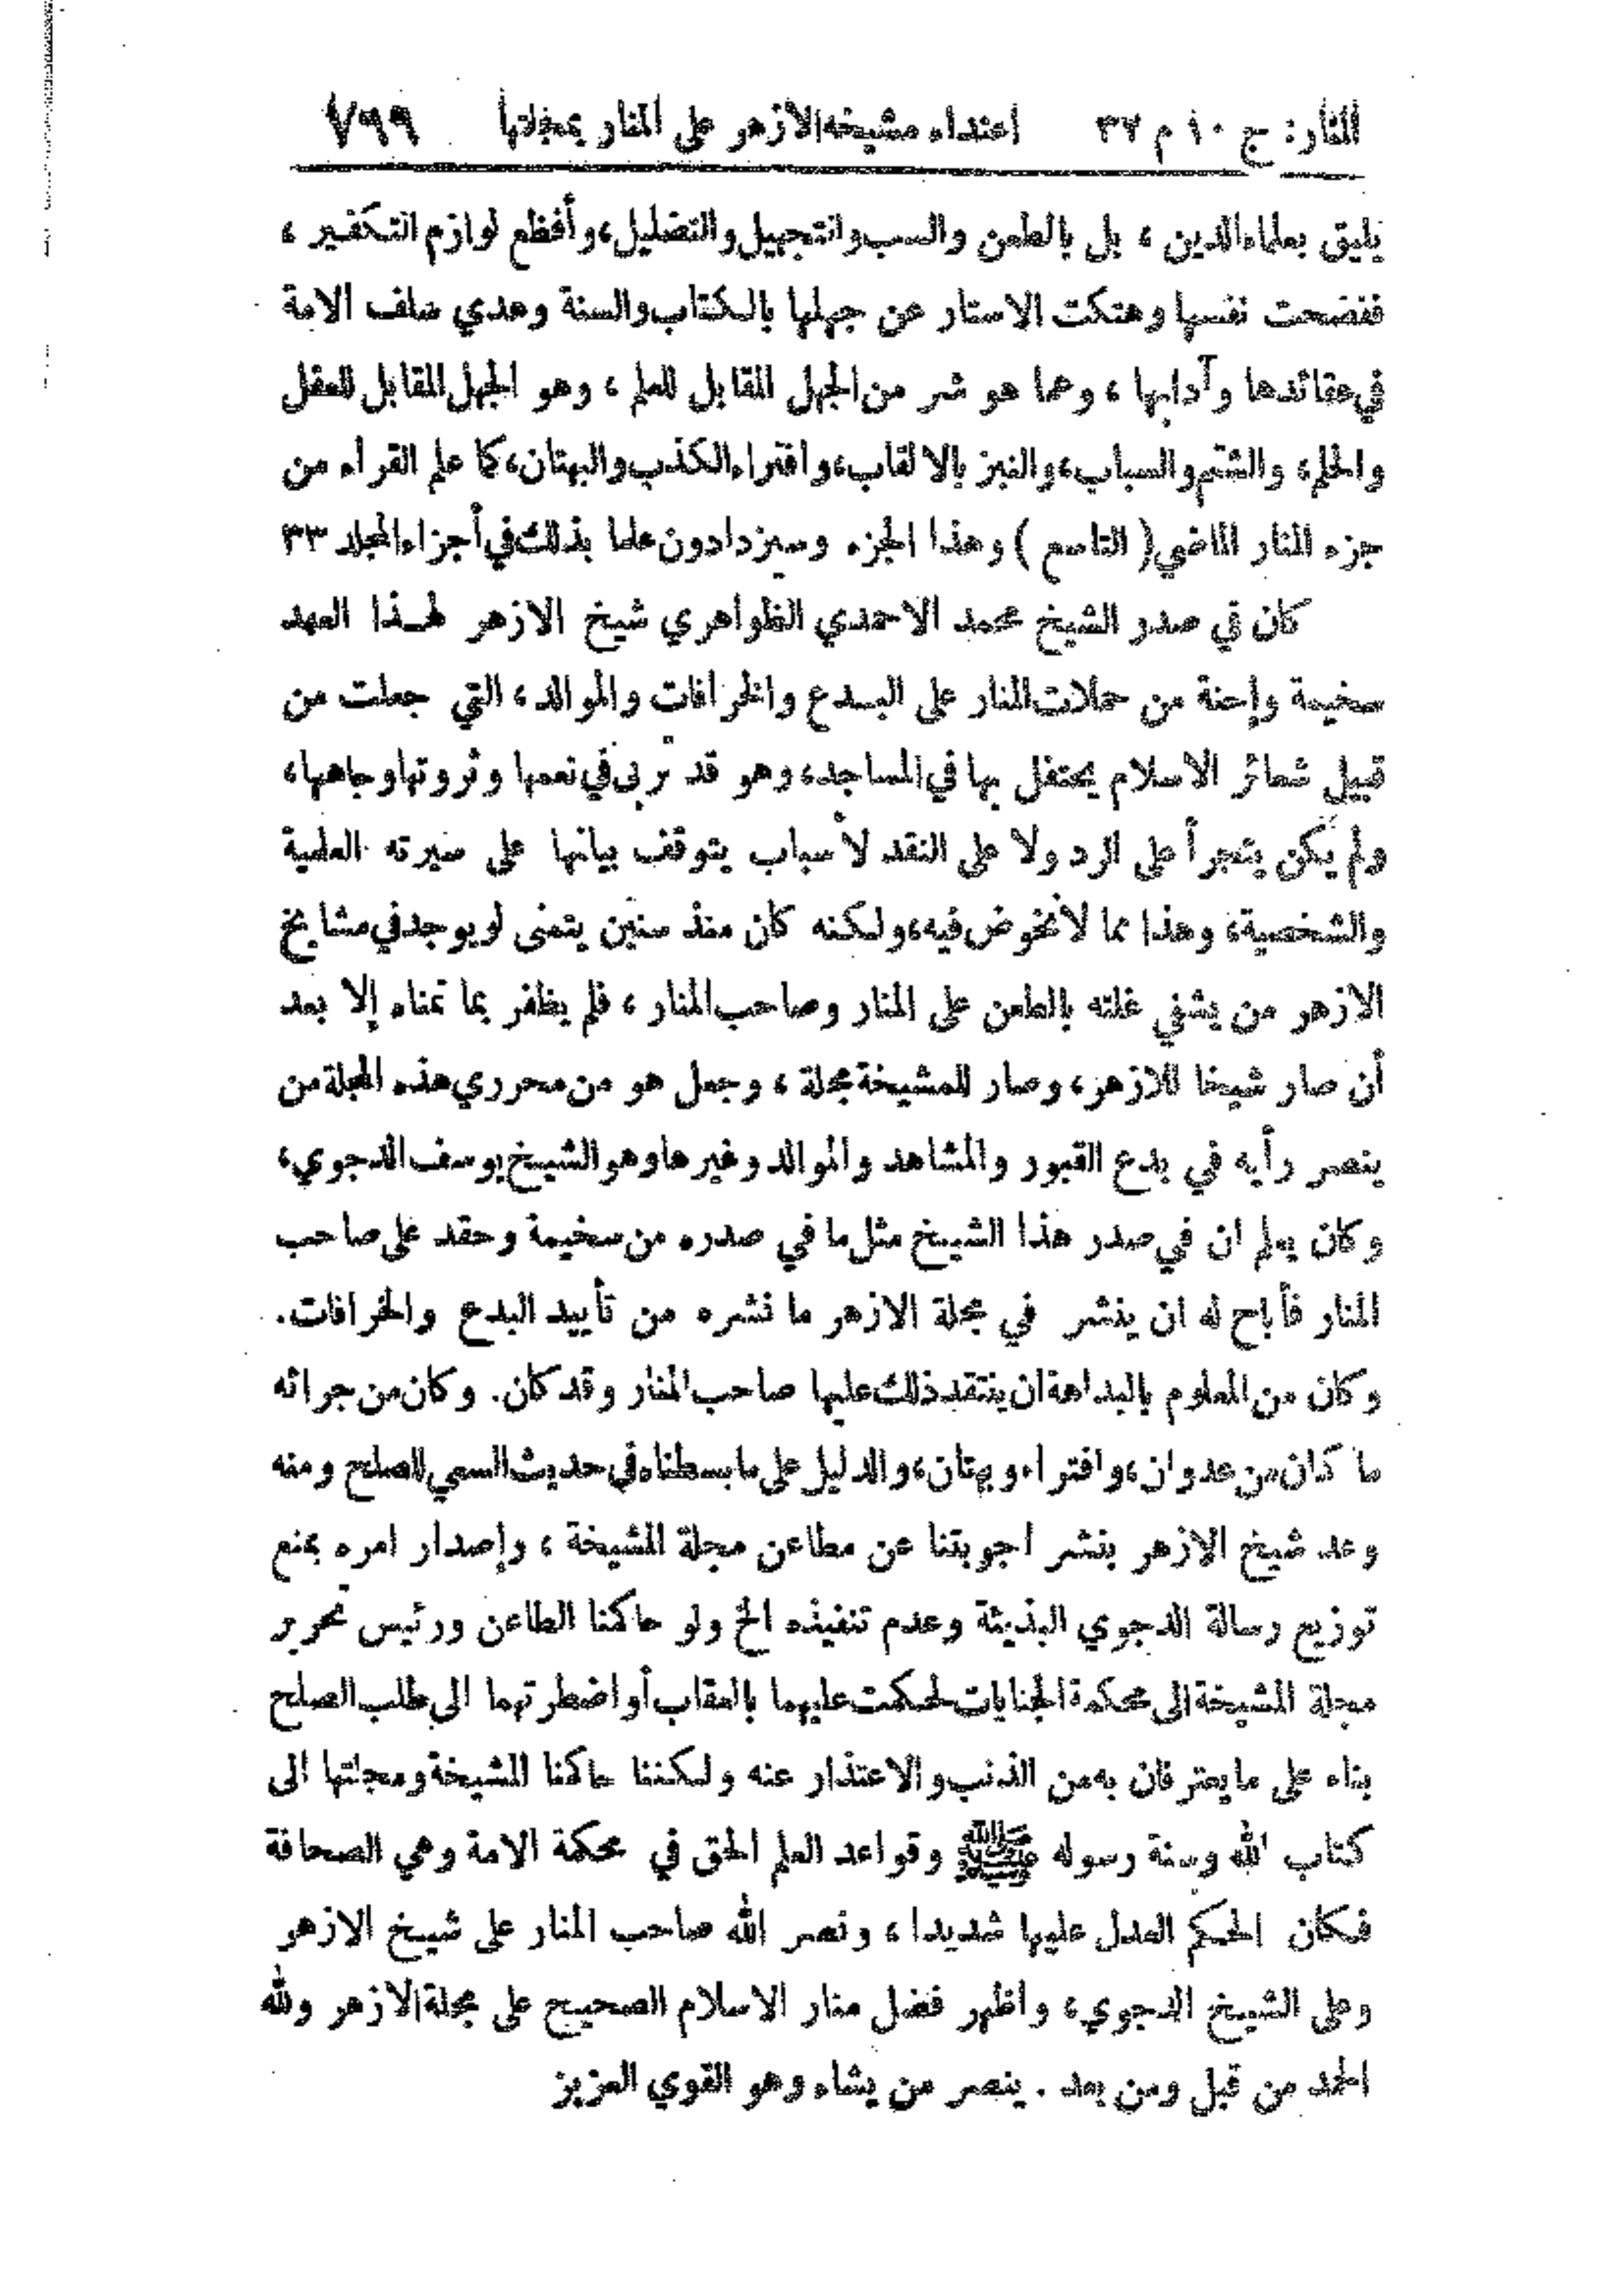 المنار: ج ١٠ م ٣٢ اعتداء مشيخة الازهر على المنار بمجلتها ٧٩٩
يليق بعلماء الدين ، بل بالطعن والسب والتجهيل والتضليل، وأفظع لوازم التكفير ،
ففضحت نفسها وهتكت الاستار عن جهلها بالكتاب والسنة وهدي سلف الامة
في عقائدها وآدابها ، وعما هو شر من الجهل المقابل للعلم ، وهو الجهل المقابل للعقل
والحلم، والشتم والسباب، والنبز بالالقاب، وافتراء الكذب والبهتان، كما علم القراء من
جزء المنار الماضي ( التاسع ) وهذا الجزء وسيزدادون علما بذلك في أجزاء المجلد ٣٣
كان في صدر الشيخ محمد الاحمدي الظواهري شيخ الازهر لهذا العهد
سخيمة وإحنة من حملات المنار على البدع والخرافات والموالد، التي جعلت من
قبيل شعائر الاسلام يحتفل بها في المساجد، وهو قد تربى في نعمها وثروتها وجاهها،
ولم يكن يتجرأ على الرد ولا على النقد لأسباب يتوقف بيانها على سيرته العلمية
والشخصية، وهذا مما لا نخوض فيه، ولكنه كان منذ سنين يتمنى لو يوجد في مشايخ
الازهر من يشفي غلته بالطعن على المنار وصاحب المنار ، فلم يظفر بما تمناه إلا بعد
أن صار شيخا للازهر، وصار للمشيخة مجلة ، وجعل هو من محرري هذه المجلة من
ينصر رأيه في بدع القبور والمشاهد والموالد وغيرها وهو الشيخ يوسف الدجوي،
وكان يعلم ان في صدر هذا الشيخ مثل ما في صدره من سخيمة وحقد على صاحب
المنار فأباح له ان ينشر في مجلة الازهر ما نشره من تأييد البدع والخرافات.
وكان من المعلوم بالبداهة ان ينتقد ذلك عليها صاحب المنار وقد كان. وكان من جرائه
ما كان من عدوان، وافتراء وبهتان، والدليل على ما بسطناه في حديث السعي للصلح ومنه
وعد شيخ الازهر بنشر اجوبتنا عن مطاعن مجلة المشيخة ، وإصدار امره بمنع
توزيع رسالة الدجوي البذيئة وعدم تنفيذه الخ ولو حاكمنا الطاعن ورئيس تحرير
مجلة المشيخة الى محكمة الجنايات لحكمت عليهما بالعقاب أو اضطرتهما الى طلب الصلح
بناء على ما يعترفان به من الذنب والاعتذار عنه ولكننا حاكمنا المشيخة ومجلتها الى
كتاب الله وسنة رسوله ﷺ وقواعد العلم الحق في محكمة الامة وهي الصحافة
فكان الحكم العدل عليها شديدا ، ونصر الله صاحب المنار على شيخ الازهر
وعلى الشيخ الدجوي، واظهر فضل منار الاسلام الصحيح على مجلة الازهر ولله
الحمد من قبل ومن بعد . ينصر من يشاء وهو القوي العزيز